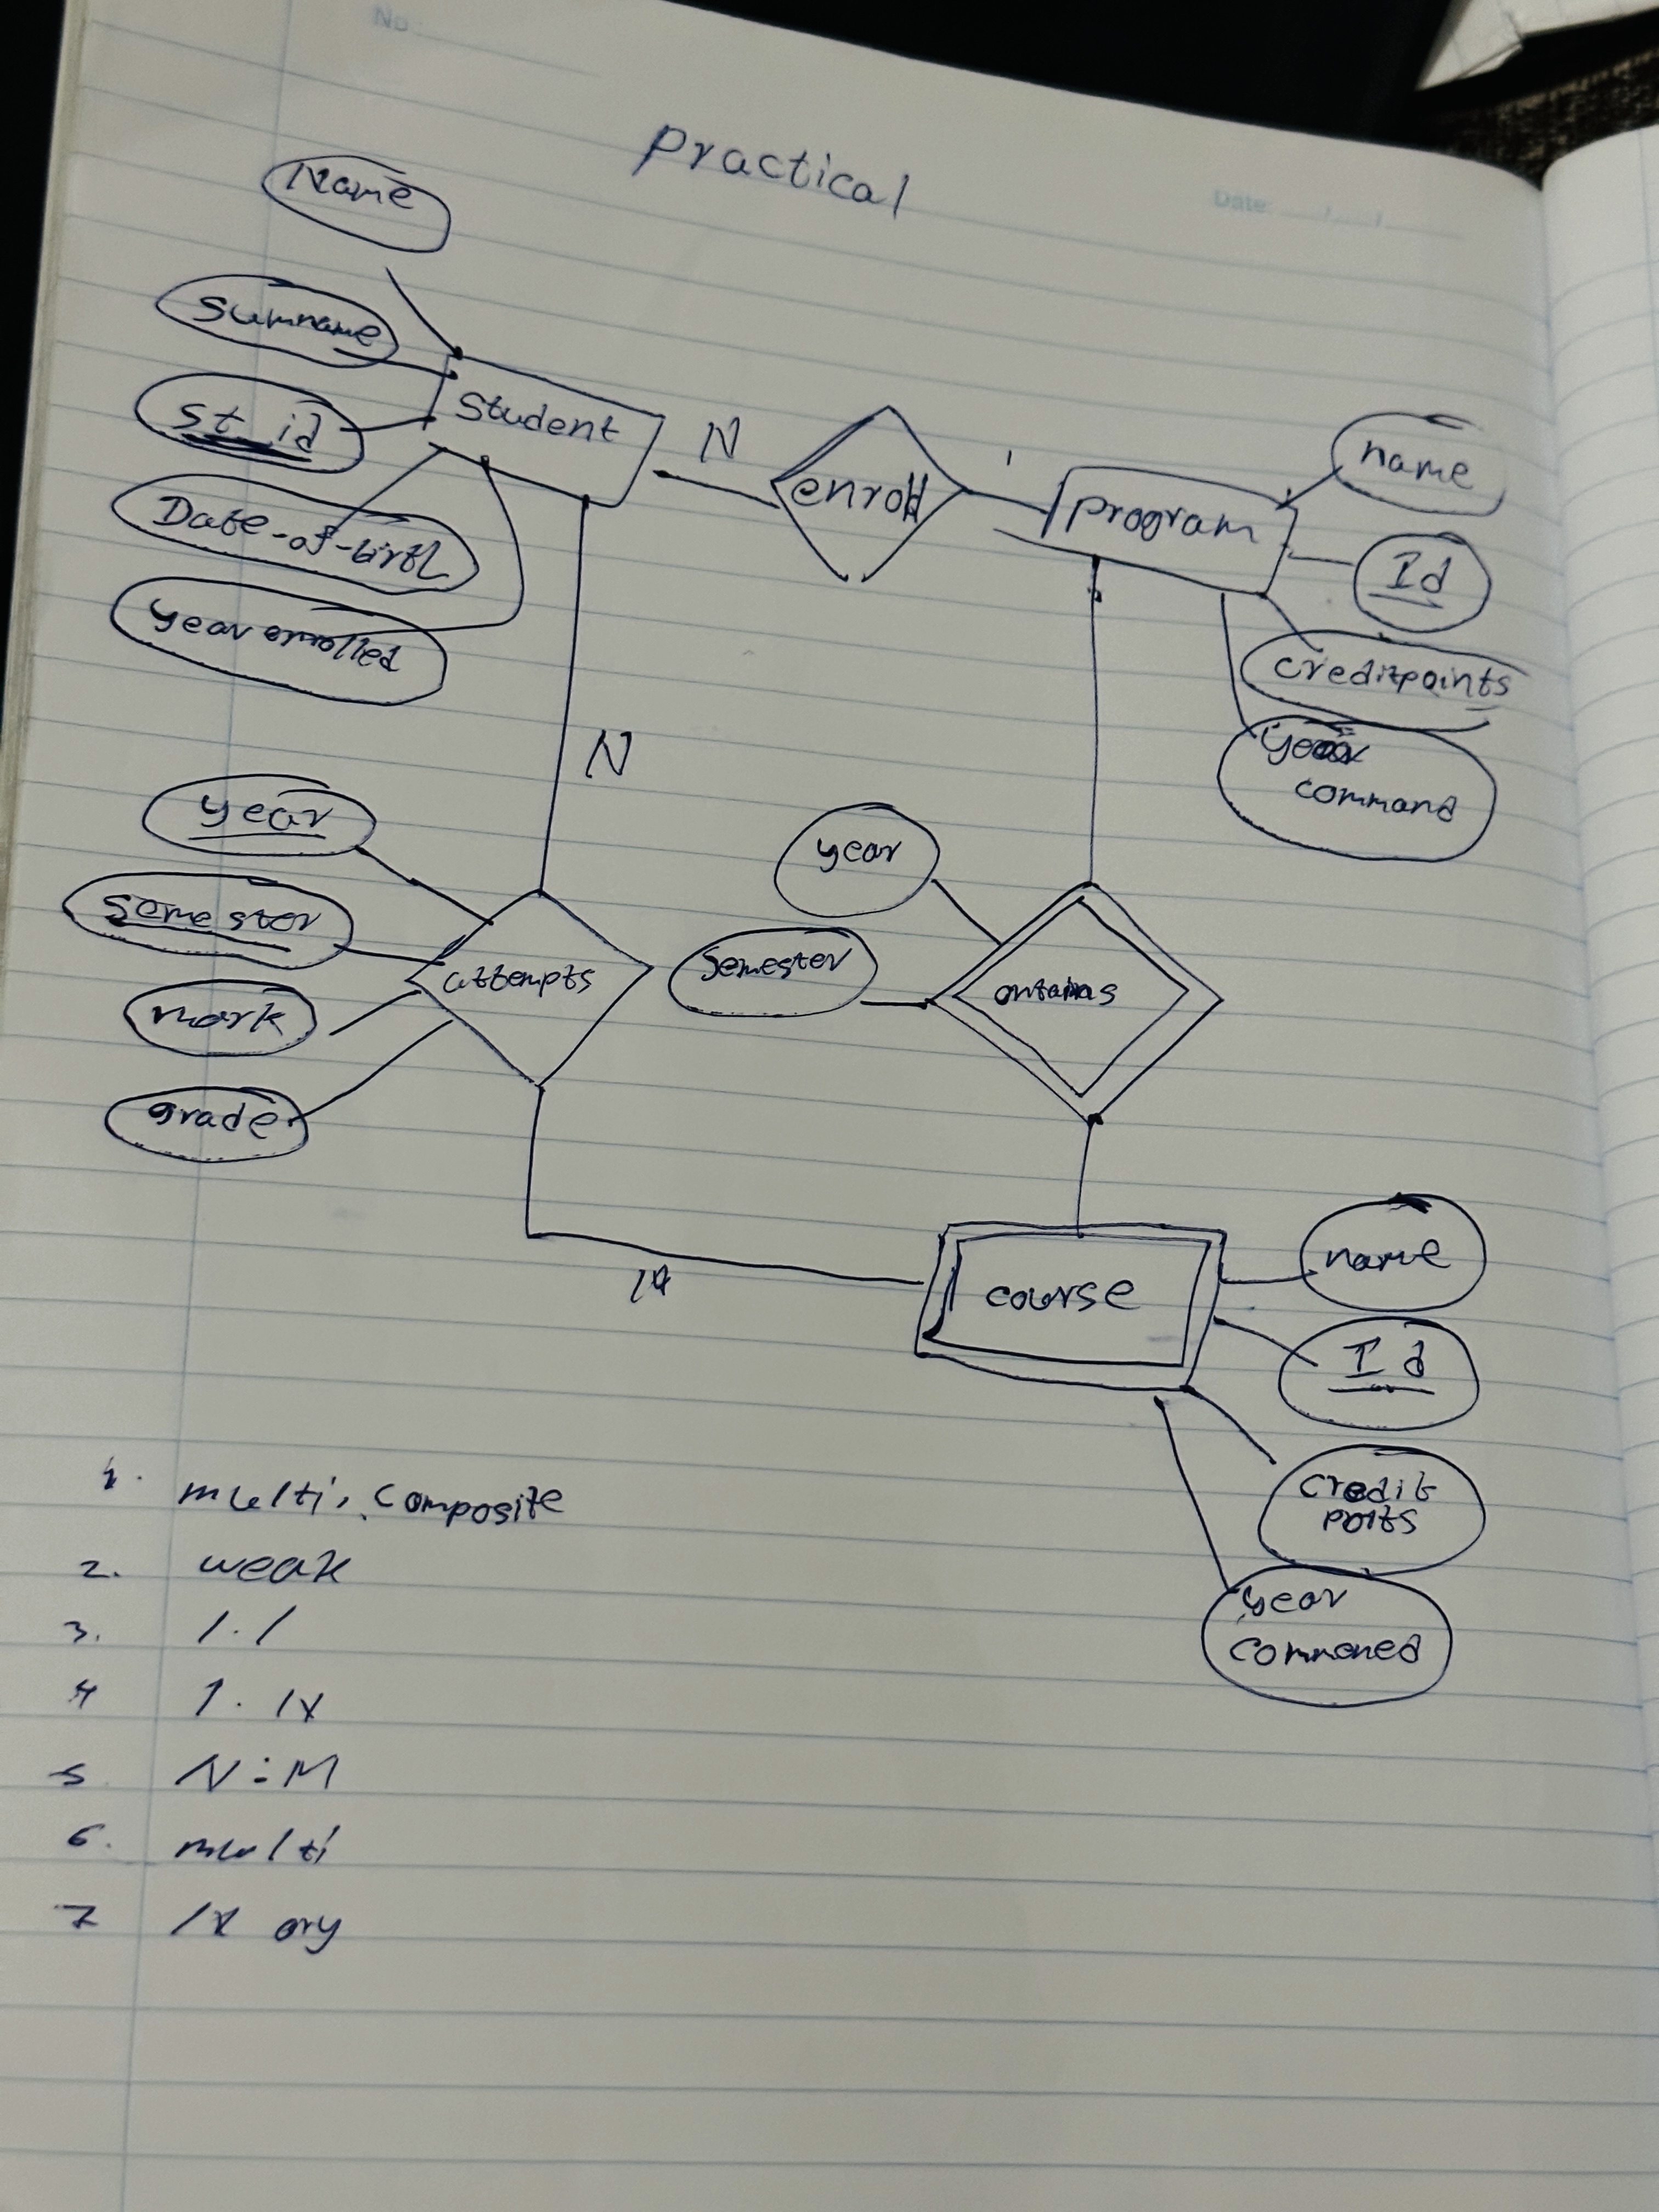 No
practical
Date
Name
Surname
st_id
Date-of-birth
year enrolled
Student
N
enroll
1
program
name
Id
creditpoints
year
command
N
year
semester
mark
grade
attempts
year
semester
course
name
Id
credit
year
commened
1. multi, composite
2. weak
3. 1.1
4 1. N
5. N:M
6. multi
7 N ary